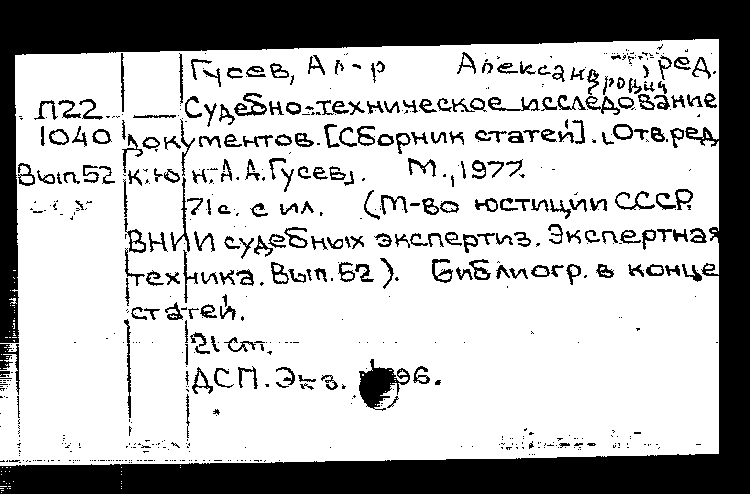 Гусев, Ал-р Александрович, ред.
П22 Судебно-техническое исследование
1040 документов. [Сборник статей]. [Отв. ред.
Вып. 52 к. ю. н. А. А. Гусев]. М., 1977.
71 с. с ил. (М-во юстиции СССР.
ВНИИ судебных экспертиз. Экспертная
техника. Вып. 52). Библиогр. в конце
статей.
21 ст.
ДСП. Экз. 96.